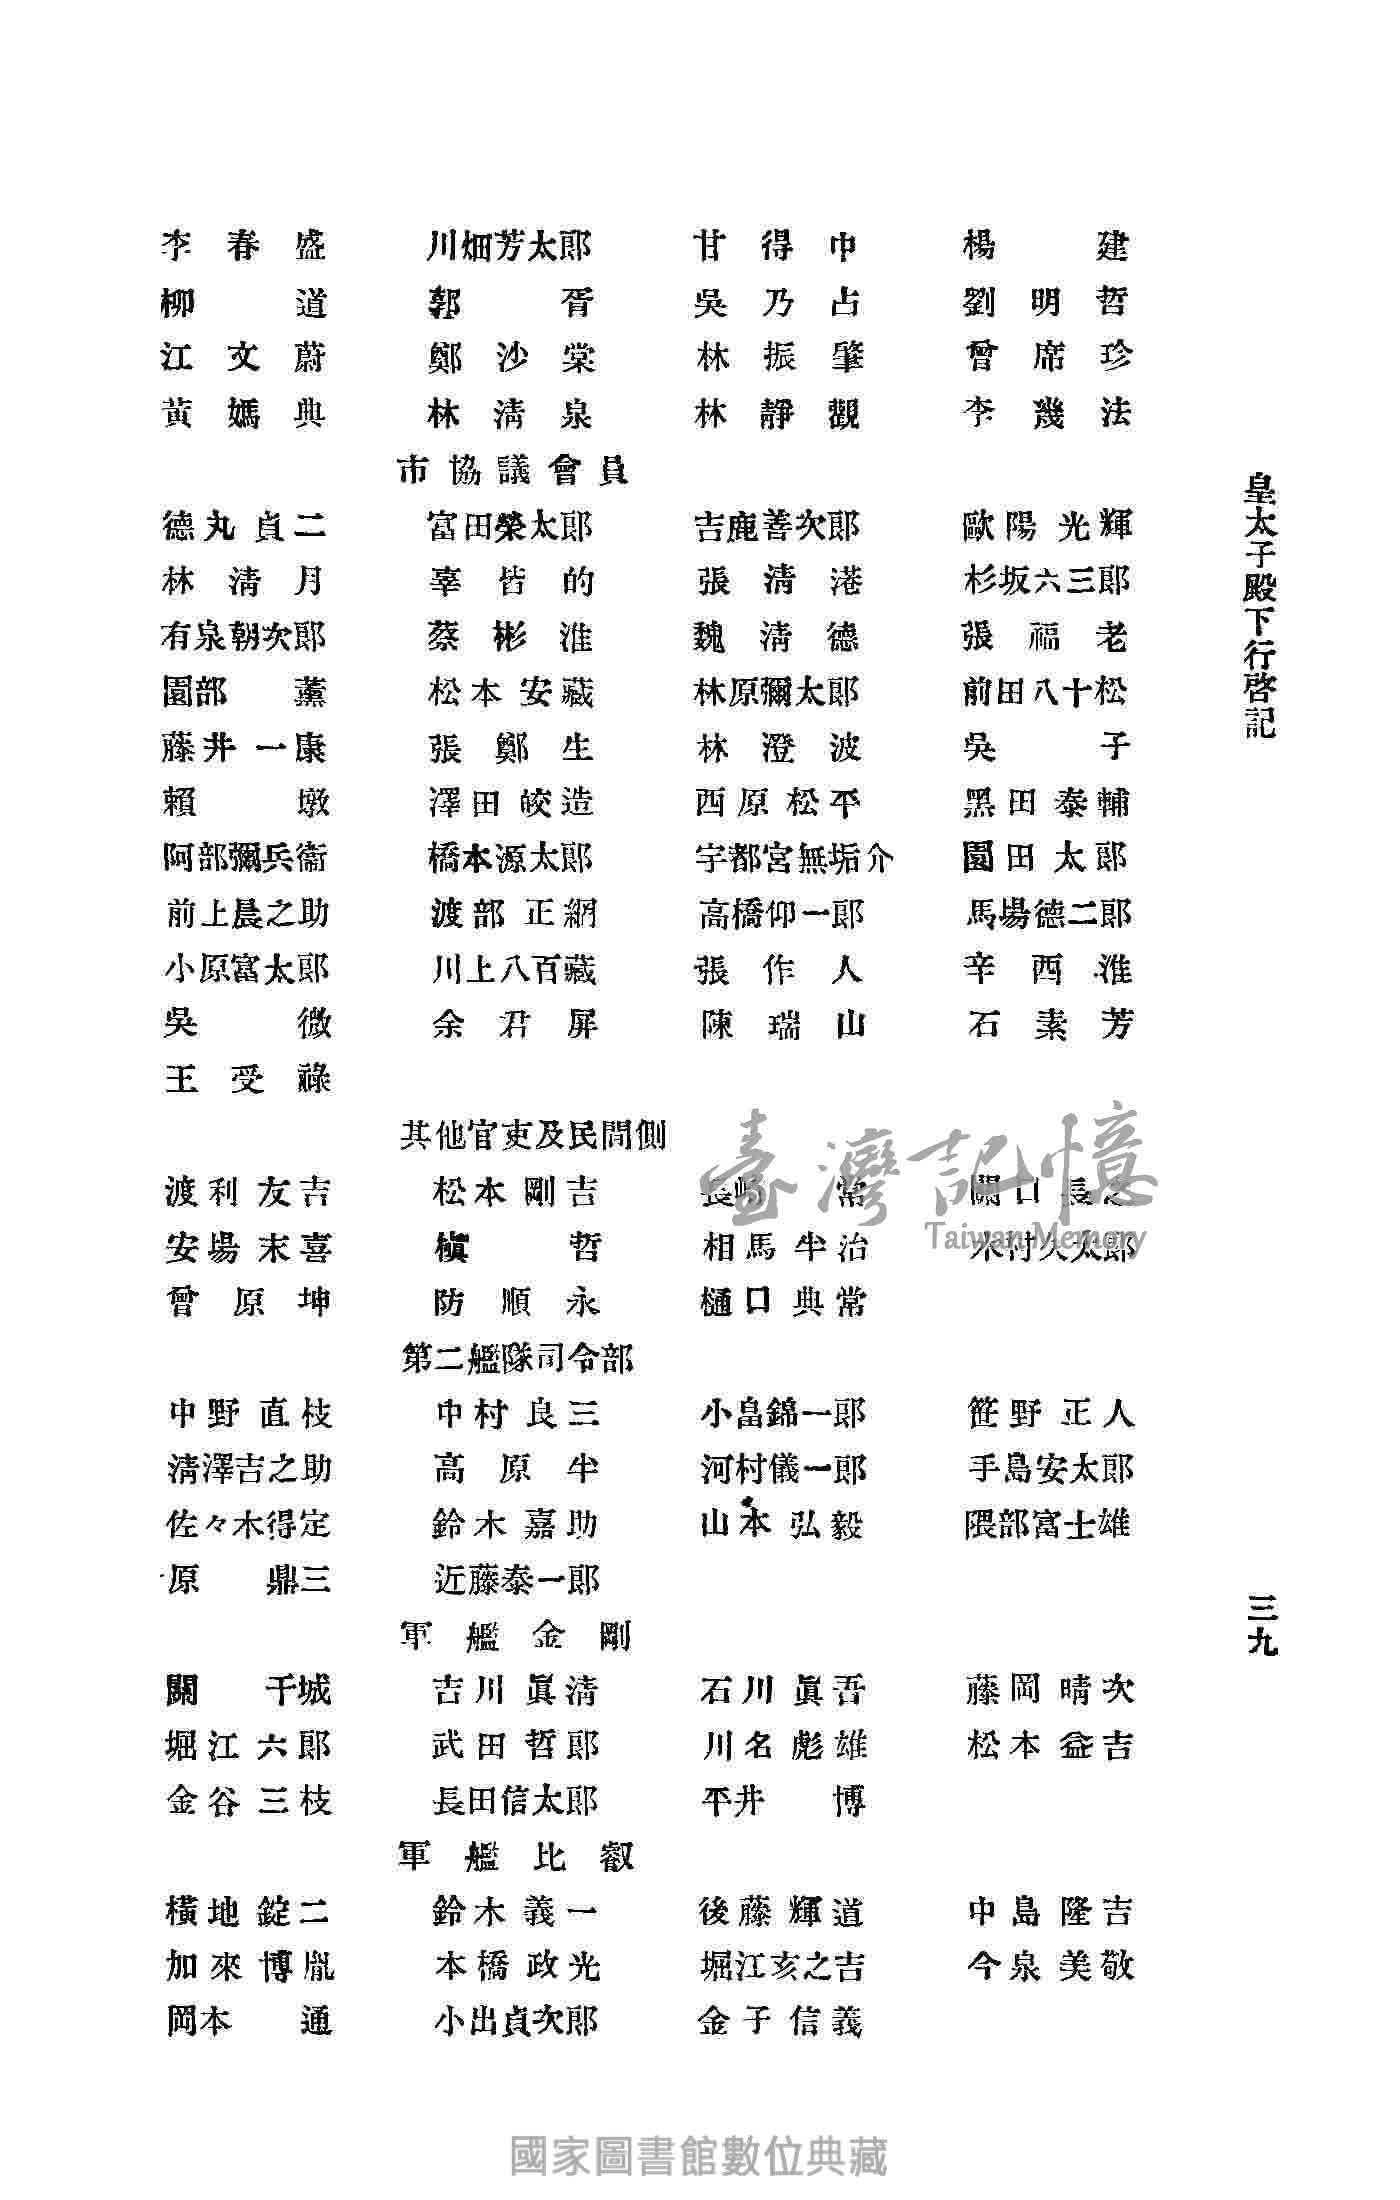 李春盛 川畑芳太郎 甘得中 楊建
柳道 郭胥 吳乃占 劉明哲
江文蔚 鄭沙棠 林振肇 曾席珍
黃媽典 林淸泉 林靜觀 李幾法
市協議會員
德丸貞二 富田榮太郎 吉鹿善次郎 歐陽光輝
林淸月 辜皆的 張淸港 杉坂六三郎
有泉朝次郎 蔡彬淮 魏淸德 張福老
園部薰 松本安藏 林原彌太郎 前田八十松
藤井一康 張鄭生 林澄波 吳子
賴墩 澤田皎造 西原松平 黑田泰輔
阿部彌兵衞 橋本源太郎 宇都宮無垢介 園田太郎
前上晨之助 渡部正網 高橋仰一郎 馬場德二郎
小原富太郎 川上八百藏 張作人 辛西淮
吳微 余君屏 陳瑞山 石素芳
王受祿
其他官吏及民間側
渡利友吉 松本剛吉 長崎常 關口長之
安場末喜 槇哲 相馬半治 木村久太郎
曾原坤 防順永 樋口典常
第二艦隊司令部
中野直枝 中村良三 小畠錦一郎 笹野正人
淸澤吉之助 高原半 河村儀一郎 手島安太郎
佐々木得定 鈴木嘉助 山本弘毅 隈部富士雄
原鼎三 近藤泰一郎
軍艦金剛
關干城 吉川眞淸 石川眞吾 藤岡晴次
堀江六郎 武田哲郎 川名彪雄 松本益吉
金谷三枝 長田信太郎 平井博
軍艦比叡
橫地錠二 鈴木義一 後藤輝道 中島隆吉
加來博胤 本橋政光 堀江亥之吉 今泉美敬
岡本通 小出貞次郎 金子信義
皇太子殿下行啓記
三九
臺灣記憶
Taiwan Memory
國家圖書館數位典藏